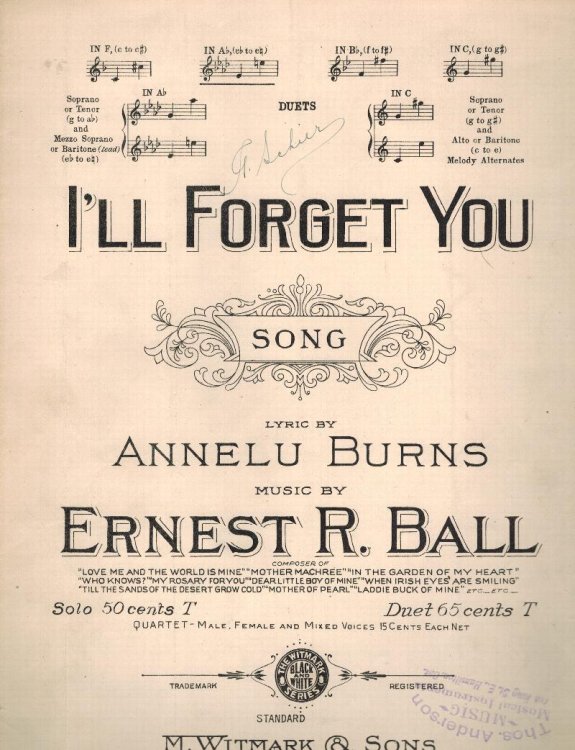 IN F, (c to c♯)
IN A♭, (e♭ to e♮)
IN B♭, (f to f♯)
IN C, (g to g♯)
Soprano
or Tenor
(g to a♭)
and
Mezzo Soprano
or Baritone (lead)
(e♭ to e♮)
IN A♭
DUETS
IN C
Soprano
or Tenor
(g to g♯)
and
Alto or Baritone
(c to e)
Melody Alternates
I'LL FORGET YOU
SONG
LYRIC BY
ANNELU BURNS
MUSIC BY
ERNEST R. BALL
COMPOSER OF
"LOVE ME AND THE WORLD IS MINE" "MOTHER MACHREE" "IN THE GARDEN OF MY HEART"
"WHO KNOWS?" "MY ROSARY FOR YOU" "DEAR LITTLE BOY OF MINE" "WHEN IRISH EYES ARE SMILING"
"TILL THE SANDS OF THE DESERT GROW COLD" "MOTHER OF PEARL" "LADDIE BUCK OF MINE" ETC._ ETC._
Solo 50 cents T
Duet 65 cents T
QUARTET - MALE, FEMALE AND MIXED VOICES 15 CENTS EACH NET
TRADEMARK
THE WITMARK
BLACK
AND
WHITE
SERIES
REGISTERED
STANDARD
M. WITMARK & SONS
Thos. Anderson
MUSIC
Musical Instruments